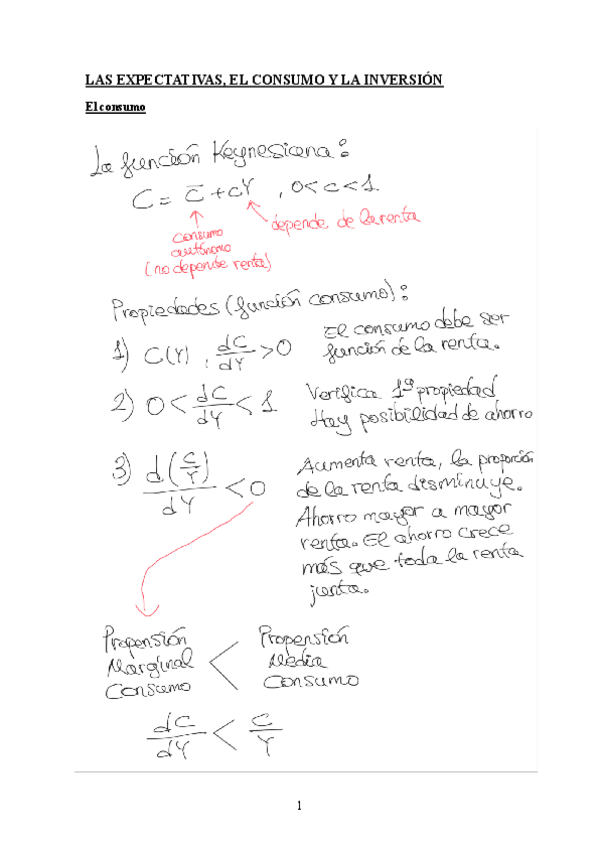 LAS EXPECTATIVAS, EL CONSUMO Y LA INVERSIÓN
El consumo
La función Keynesiana:
C = C̄ + cY , 0<c<1
depende de la renta
consumo
autónomo
(no depende renta)
Propiedades (función consumo):
1) C(Y) , dC/dY > 0
El consumo debe ser
función de la renta.
2) 0 < dC/dY < 1
Verifica 1º propiedad
Hay posibilidad de ahorro
3) d(C/Y)/dY < 0
Aumenta renta, la proporción
de la renta disminuye.
Ahorro mayor a mayor
renta. El ahorro crece
más que toda la renta
junta.
Propensión Marginal Consumo < Propensión Media Consumo
dC/dY < C/Y
1